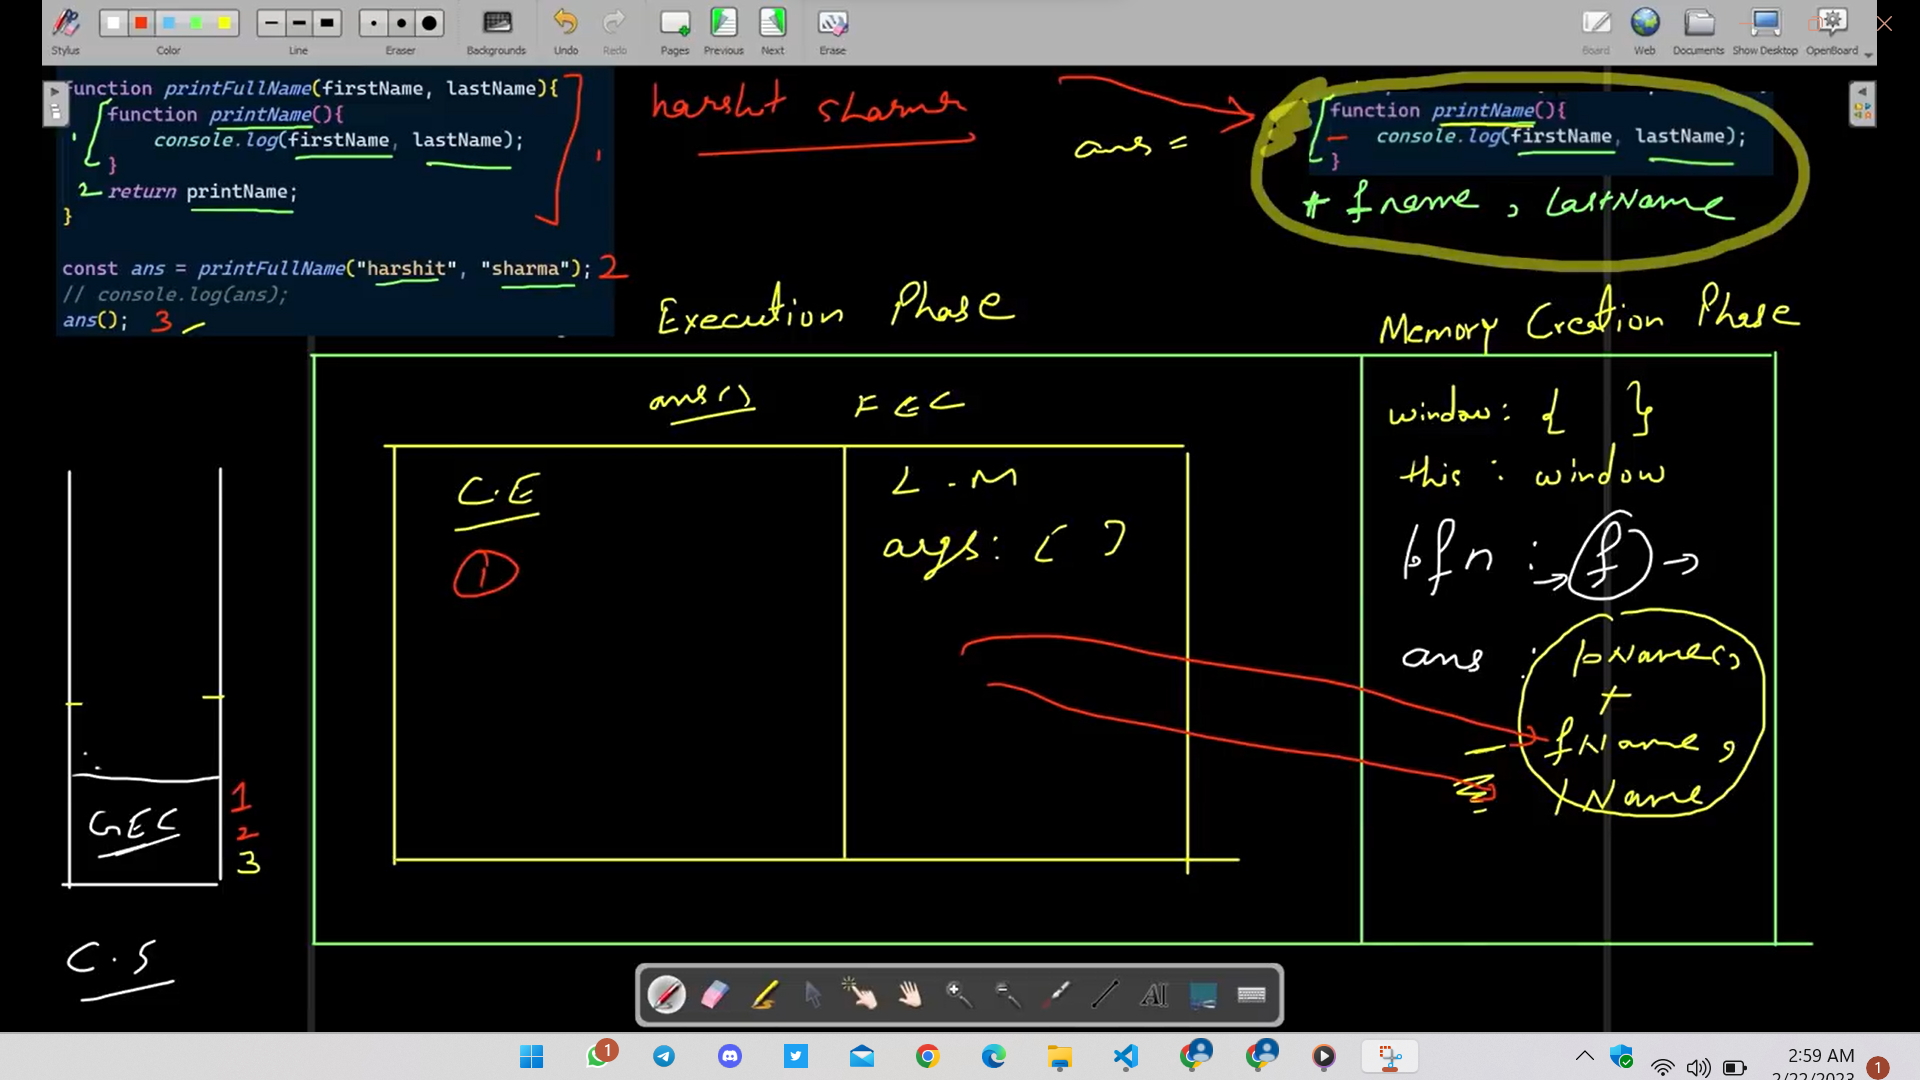 Stylus Color Line Eraser Backgrounds Undo Redo Pages Previous Next Erase Board Web Documents Show Desktop OpenBoard
function printFullName(firstName, lastName){
function printName(){
console.log(firstName, lastName);
}
2 return printName;
}
const ans = printFullName("harshit", "sharma"); 2
// console.log(ans);
ans(); 3
harshit sharma
ans =
function printName(){
console.log(firstName, lastName);
}
+ fname , lastName
Execution Phase
Memory Creation Phase
ans() FEC
C.E
1
L.M
args: [ ]
window: { }
this : window
pfn : f
ans : pName()
+
fName,
lName
GEC
1
2
3
C.S
AI
1
2:59 AM
2/22/2023
1